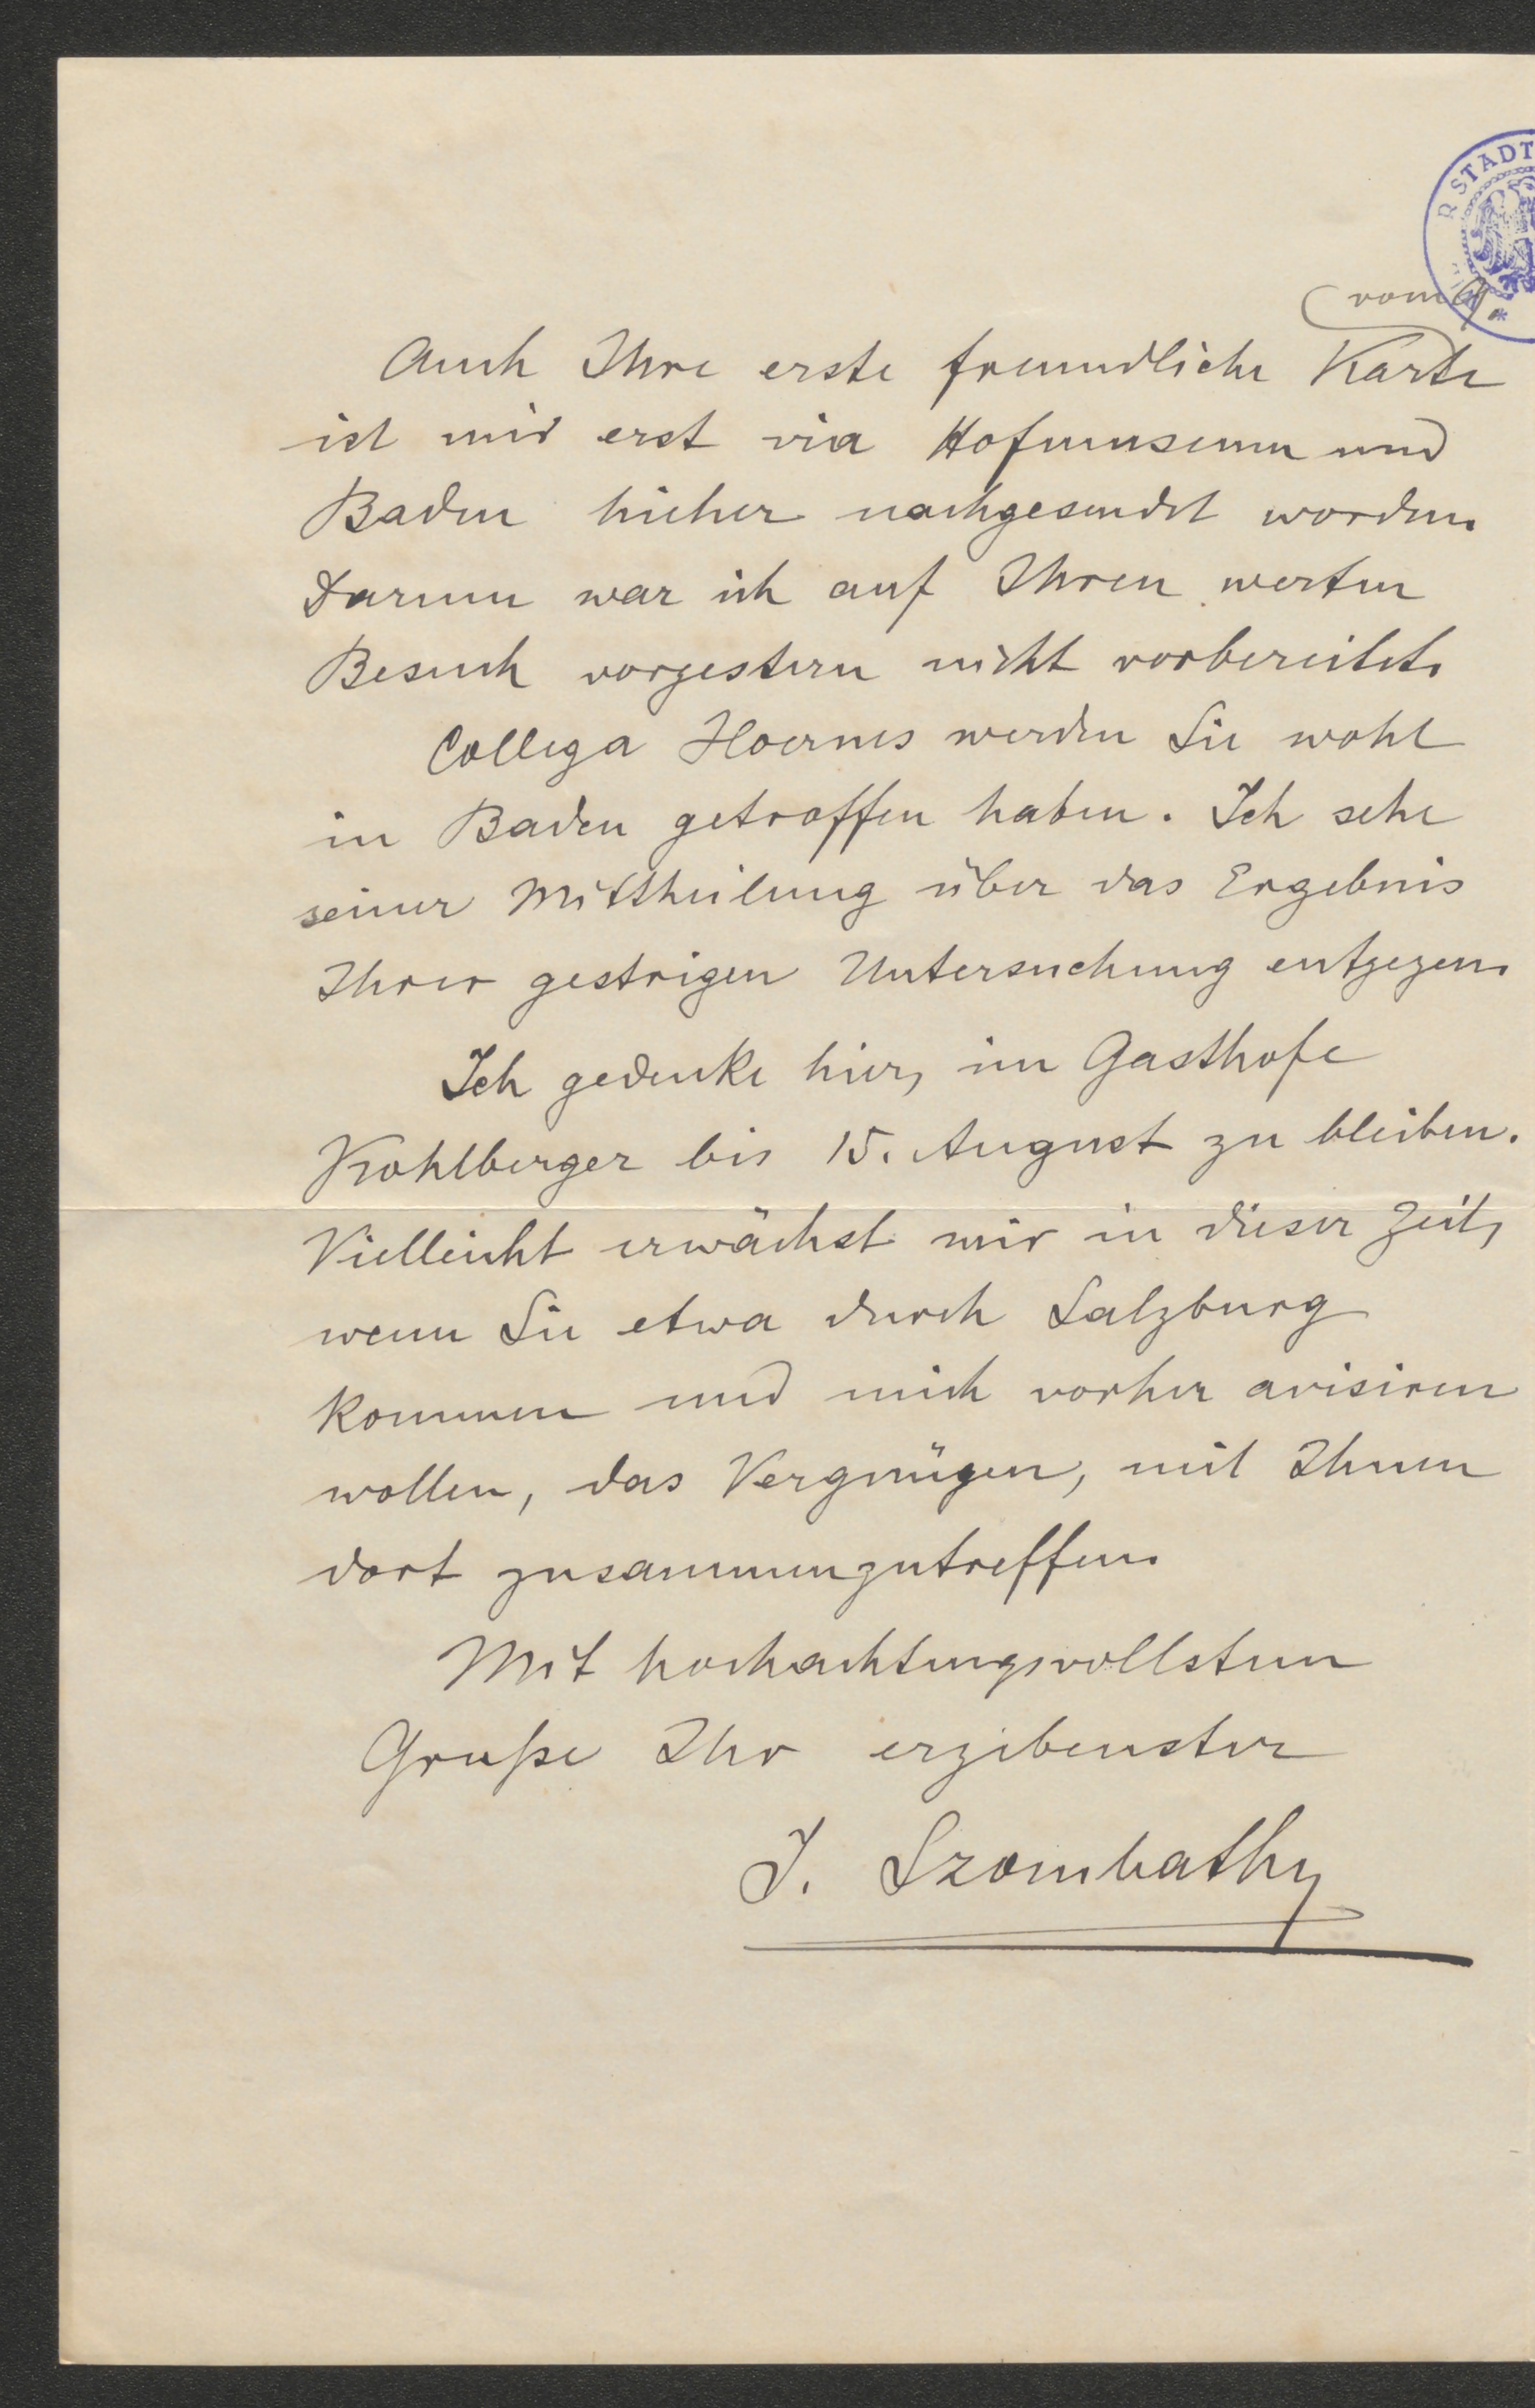 R STADT
vom 9.
Auch Ihre erste freundliche Karte
ist mir erst via Hofmuseum und
Baden hieher nachgesendet worden.
Darum war ich auf Ihren werten
Besuch vorgestern nicht vorbereitet.
Collega Hoernes werden Sie wohl
in Baden getroffen haben. Ich sehe
seiner Mittheilung über das Ergebnis
Ihrer gestrigen Untersuchung entgegen.
Ich gedenke hier, im Gasthofe
Kohlberger bis 15. August zu bleiben.
Vielleicht erwächst mir in dieser Zeit,
wenn Sie etwa durch Salzburg
kommen und mich vorher avisiren
wollen, das Vergnügen, mit Ihnen
dort zusammenzutreffen.
Mit hochachtungsvollstem
Gruße Ihr ergebenster
J. Szombathy